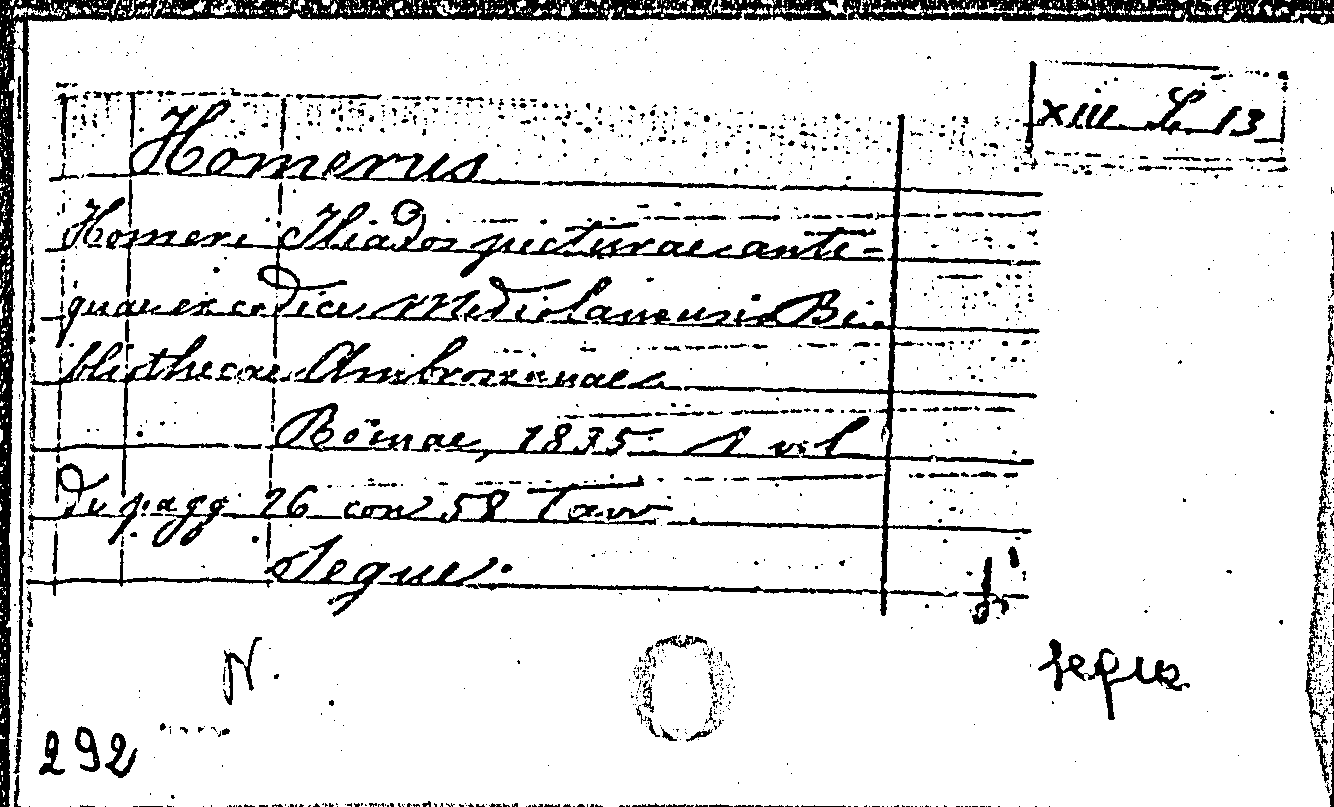 XIII L. 13
Homerus
Homeri Iliados picturae anti-
quae ex codice Mediolanensis Bi-
bliothecae Ambrosianae
Romae, 1835. 1 vol
di pagg. 26 con 58 Tavv.
Segue.
segue
N.
292